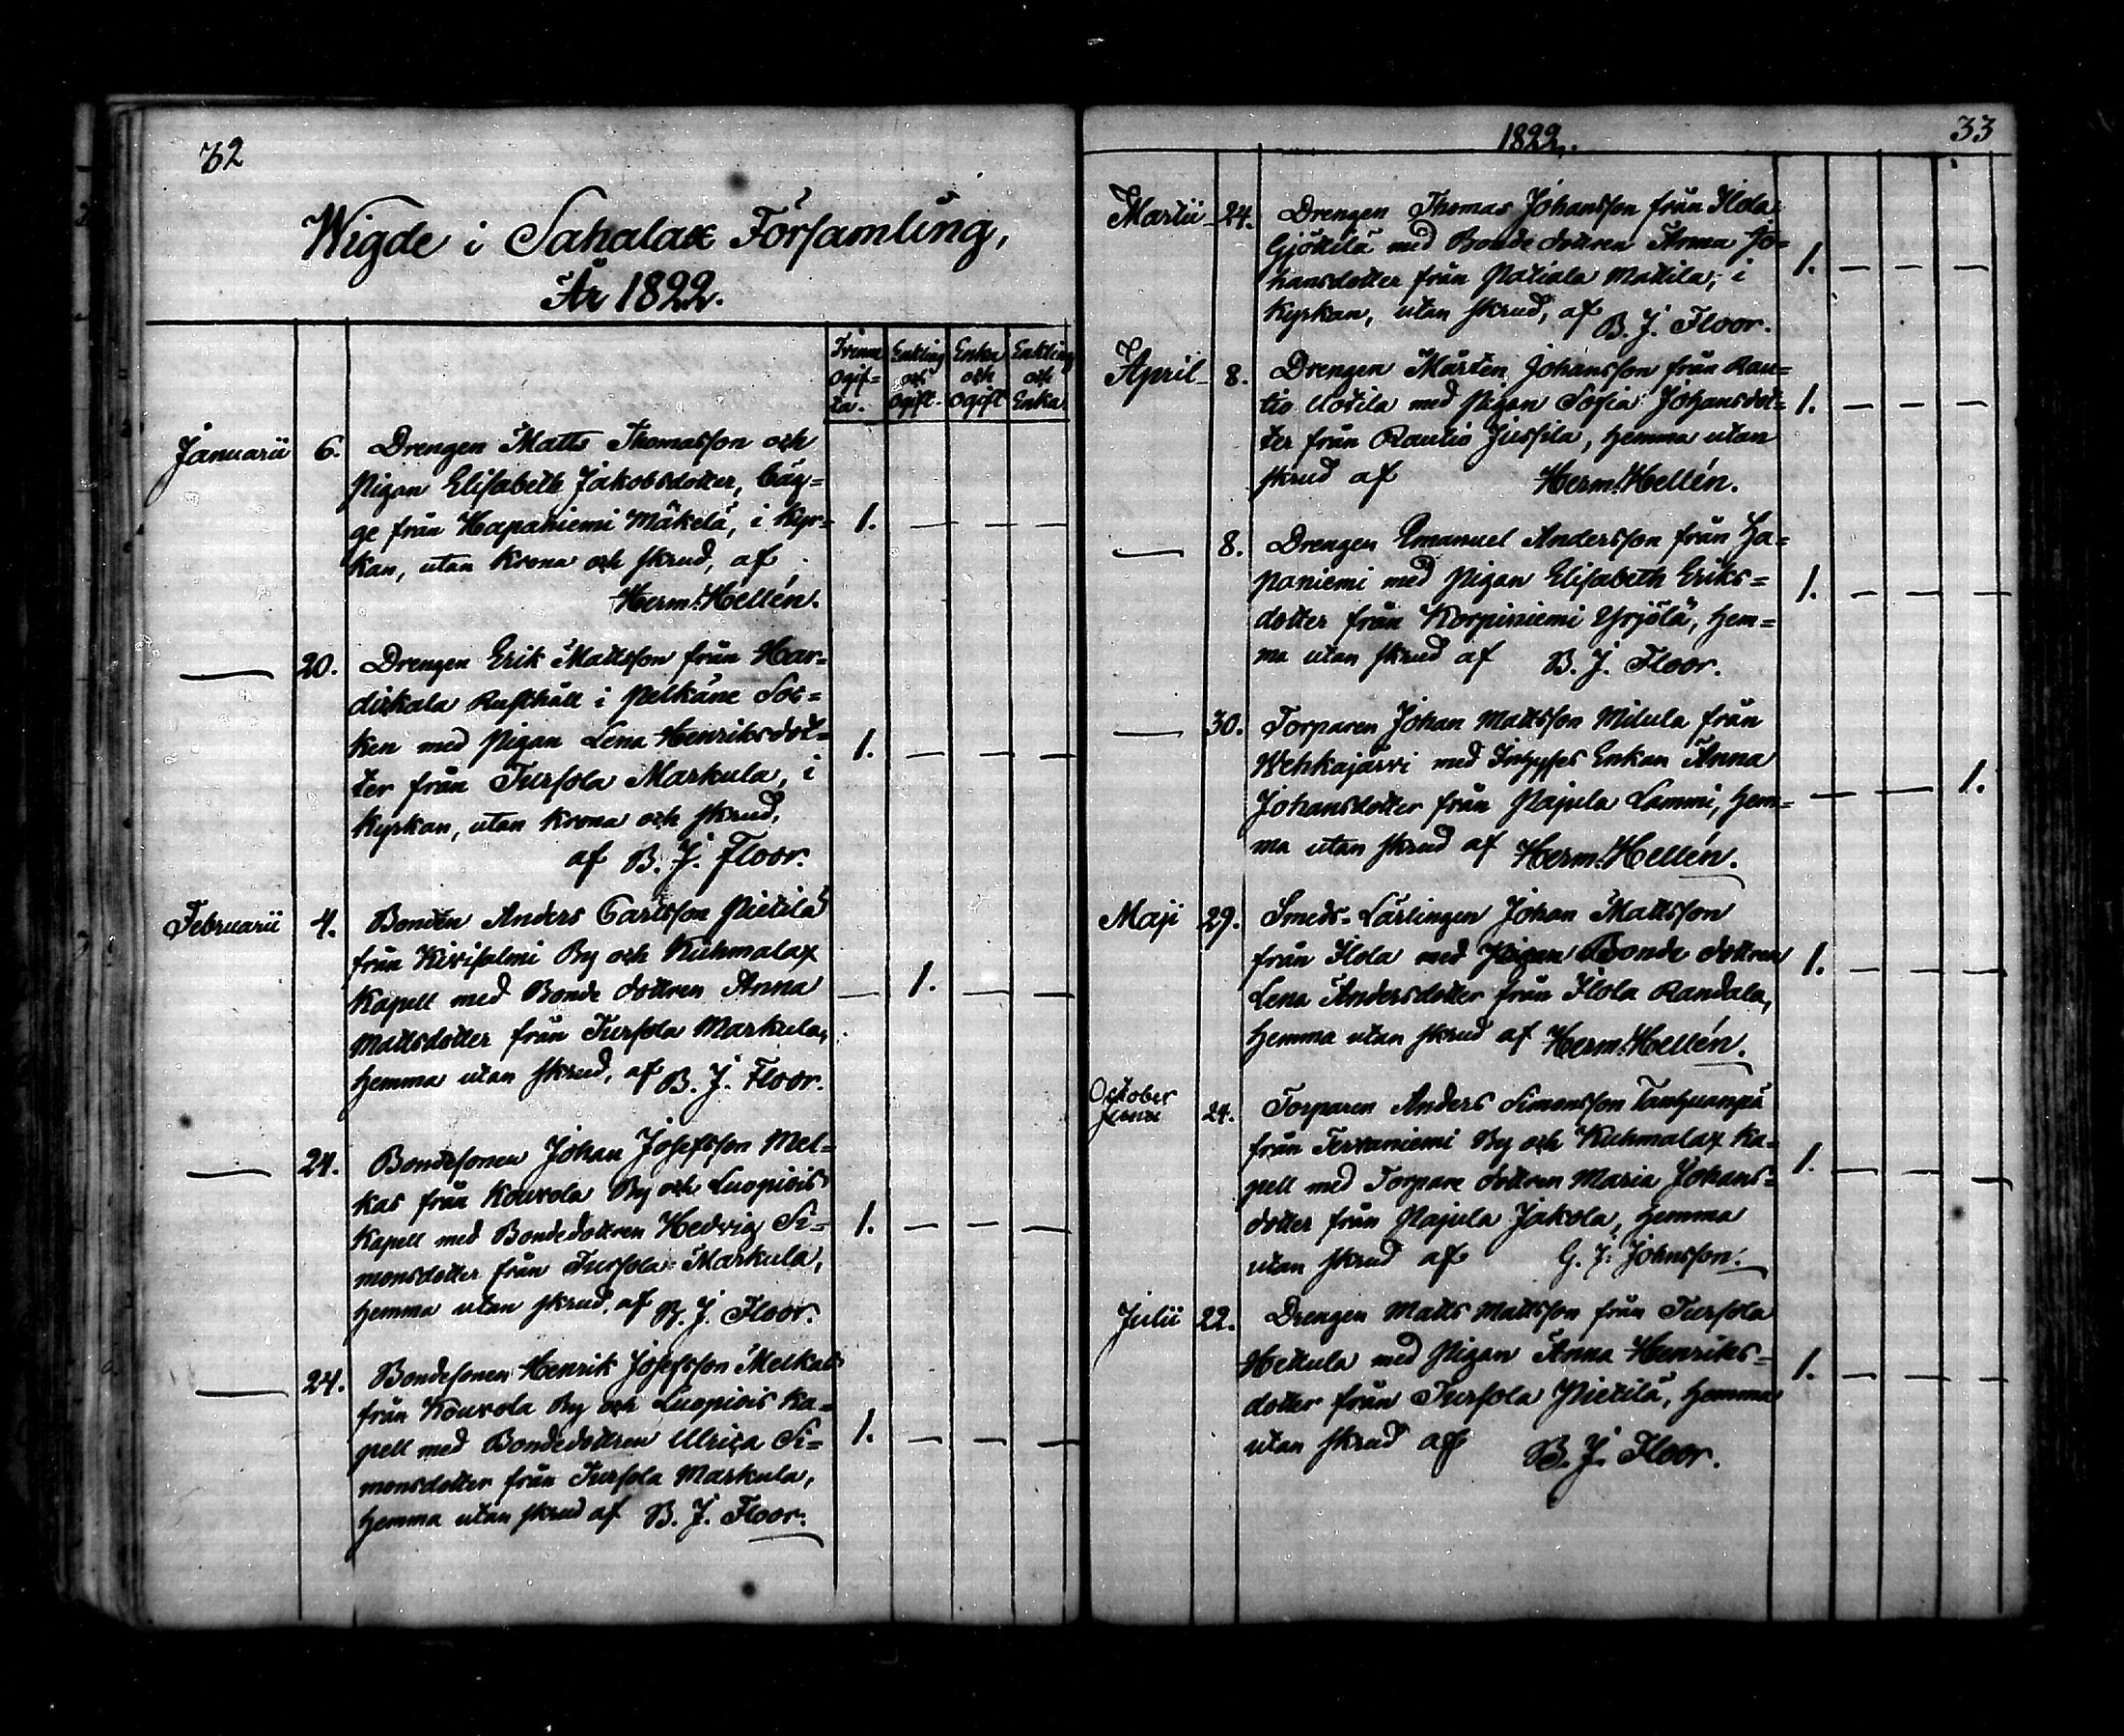 32
Wigde i Sahalax Församling,
År 1822.
Tvenne Ogif= ta.
Enkling och Ogift.
Enka och Ogift
Enkling och Enka
Januarii 6. Drengen Matts Thomasson och
Pigan Elisabeth Jakobsdotter, bäg=
ge från Hapaniemi Mäkelä, i Kyr= 1. — — —
kan, utan Krona och skrud, af
Herm: Hellén.
— 20. Drengen Erik Mattsson från Har=
dikala Rusthåll i Pelkäne Soc=
ken med Pigan Lena Henriksdot= 1. — — —
ter från Tursola Markula, i
Kyrkan, utan Krona och skrud,
af B. J. Floor.
Februarii 4. Bonden Anders Carlsson Pietilä
från Kirisalmi By och Kuhmalax
Kapell med Bonde dottren Anna — 1. — —
Mattsdotter från Tursola Markula,
hemma utan skrud, af B. J. Floor.
— 24. Bondesonen Johan Josefsson Mel=
kas från Kouvola By och Luopiois
Kapell med Bondedottren Hedvig Si= 1. — — —
monsdotter från Tursola Markula,
hemma utan skrud, af B. J. Floor.
— 24. Bondesonen Henrik Josefsson Melkas
från Kouvola By och Luopiois Ka=
pell med Bondedottren Ulrica Si= 1. — — —
monsdotter från Tursola Markula,
hemma utan skrud af B. J. Floor.
1822. 33
Martii 24. Drengen Thomas Johansson från Ilola
Gjöttilä med Bonde dottren Anna Jo= 1. — — —
hansdotter från Patiala Mattila, i
Kyrkan, utan skrud, af B. J. Floor.
April 8. Drengen Mårten Johansson från Rau=
tio Uotila med Pigan Sofia Johansdot= 1. — — —
ter från Rautio Jussila, hemma utan
skrud af Herm: Hellén.
— 8. Drengen Emanuel Andersson från Ha=
paniemi med Pigan Elisabeth Eriks= 1. — — —
dotter från Korpiniemi Yrjölä, hem=
ma utan skrud af B. J. Floor.
— 30. Torparen Johan Mattsson Milula från
Wehkajärvi med Inhyses Enkan Anna
Johansdotter från Pajula Lammi, hem= — — — 1.
ma utan skrud af Herm: Hellén.
Maji 29. Smeds-Lärlingen Johan Mattsson
från Ilola med Pigan Bonde dottren 1. — — —
Lena Andersdotter från Ilola Randala,
hemma utan skrud af Herm: Hellén.
October 24. Torparen Anders Simonsson
från Tervaniemi By och Kuhmalax Ka=
pell med Torpare dottren Maria Johans= 1. — — —
dotter från Pajula Jakola, hemma
utan skrud af G. J: Johnsson.
Julii 22. Drengen Matts Mattsson från Tursola
Heikula med Pigan Anna Henriks= 1. — — —
dotter från Tursola Pietilä, hemma
utan skrud af B. J. Floor.